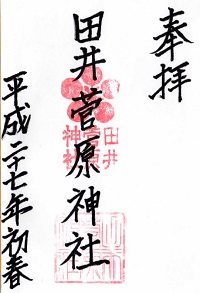 奉拝
田井菅原神社
田井
菅原
神社
平成二十七年初春